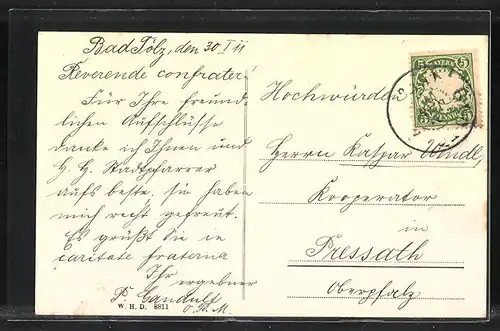 Bad Tölz, den 30 I 11
Reverende confrater!
Für Ihre freund-
lichen Aufschlüsse
danke ich Ihnen und
H. H. Stadtpfarrer
aufs beste, sie haben
mich recht gefreut.
Es grüßt Sie in
caritate fraterna
Ihr ergebner
P. Gandulf
o. F. M.
W. H. D. 8811
Hochwürden
Herrn Kaspar
Kooperator
in
Pressath
Oberpfalz
BAYERN
5 5
5 5
PFENNIG